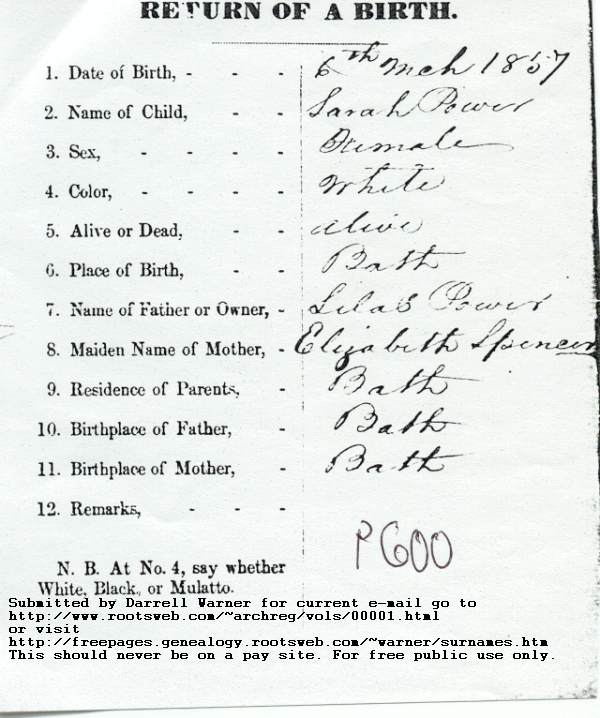 RETURN OF A BIRTH.
1. Date of Birth, - - - 6th Mch 1857
2. Name of Child, - - Sarah Power
3. Sex, - - - - Female
4. Color, - - - - White
5. Alive or Dead, - - alive
6. Place of Birth, - - Bath
7. Name of Father or Owner, - Silas Power
8. Maiden Name of Mother, - Elizabeth Spencer
9. Residence of Parents, - Bath
10. Birthplace of Father, - Bath
11. Birthplace of Mother, - Bath
12. Remarks, - - -
P600
N. B. At No. 4, say whether
White, Black, or Mulatto.
Submitted by Darrell Warner for current e-mail go to
http://www.rootsweb.com/~archreg/vols/00001.html
or visit
http://freepages.genealogy.rootsweb.com/~warner/surnames.htm
This should never be on a pay site. For free public use only.